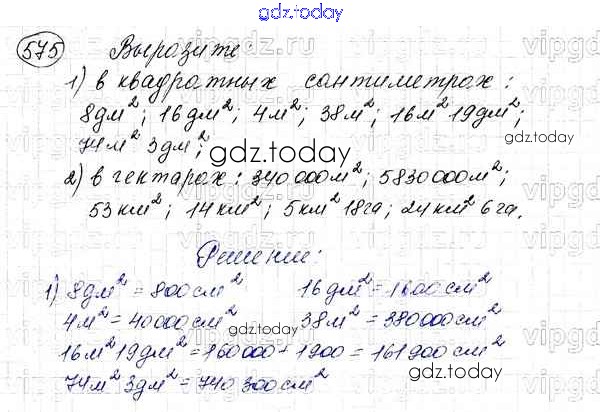 gdz.today
575 Выразите:
1) в квадратных сантиметрах:
8дм²; 16дм²; 4м²; 38м²; 16м² 19дм²;
74м² 3дм²;
gdz.today
gdz.today
2) в гектарах: 340000м²; 5830000м²;
53км²; 14км²; 5км² 18га; 24км² 6га.
Решение:
1) 8дм² = 800см² 16дм² = 1600см²
4м² = 40000см² 38м² = 380000см²
gdz.today
16м² 19дм² = 160000+1900 = 161900см²
74м² 3дм² = 740300см²
gdz.today